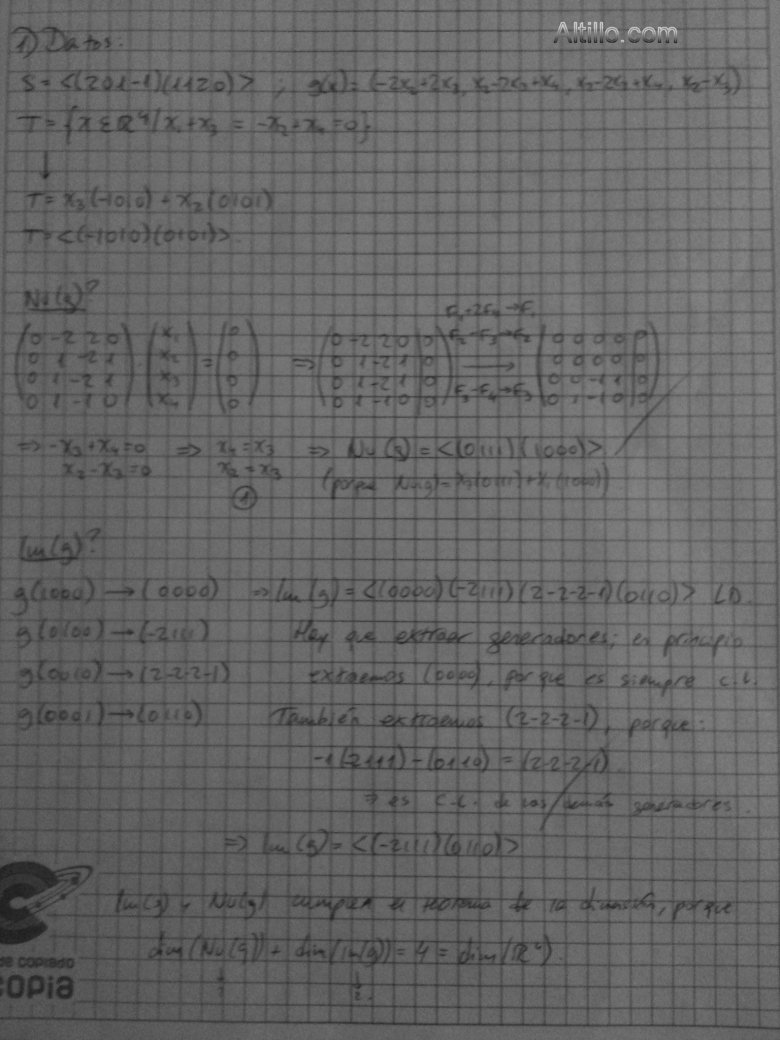 Altillo.com
1) Datos.
S = <(2 0 1 -1)(1 1 2 0)> ; g(x) = (-2x₂+2x₃, x₂-2x₃+x₄, x₂-2x₃+x₄, x₂-x₃)
T = {x ∈ ℝ⁴ / x₁+x₃ = -x₂+x₄ = 0}
↓
T = x₃(-1 0 1 0) + x₂(0 1 0 1)
T = <(-1 0 1 0)(0 1 0 1)>.
Nu(g)?
F₁+2F₄→F₁
F₂-F₃→F₂
(0 -2 2 0) (x₁) (0) (0 -2 2 0 | 0) (0 0 0 0 | 0)
(0 1 -2 1) · (x₂) = (0) ⇒ (0 1 -2 1 | 0) → (0 0 0 0 | 0)
(0 1 -2 1) (x₃) (0) (0 1 -2 1 | 0) F₃-F₄→F₃ (0 0 -1 1 | 0)
(0 1 -1 0) (x₄) (0) (0 1 -1 0 | 0) (0 1 -1 0 | 0)
⇒ -x₃+x₄=0 ⇒ x₄=x₃ ⇒ Nu(g) = <(0 1 1 1)(1 0 0 0)>
x₂-x₃=0 x₂=x₃ (porque Nu(g) = x₃(0 1 1 1)+x₁(1 0 0 0))
①
Im(g)?
g(1 0 0 0) → (0 0 0 0) ⇒ Im(g) = <(0 0 0 0)(-2 1 1 1)(2 -2 -2 -1)(0 1 1 0)> LD.
g(0 1 0 0) → (-2 1 1 1) Hay que extraer generadores; en principio
g(0 0 1 0) → (2 -2 -2 -1) extraemos (0 0 0 0), porque es siempre c.l.
g(0 0 0 1) → (0 1 1 0) También extraemos (2 -2 -2 -1), porque:
-1(-2 1 1 1) - (0 1 1 0) = (2 -2 -2 -1)
⇒ es c.l. de los demás generadores.
⇒ Im(g) = <(-2 1 1 1)(0 1 1 0)>
Im(g) y Nu(g) cumplen el teorema de la dimensión, porque
dim(Nu(g)) + dim(Im(g)) = 4 = dim(ℝ⁴).
↓ ↓
2 2
de copiado
copia